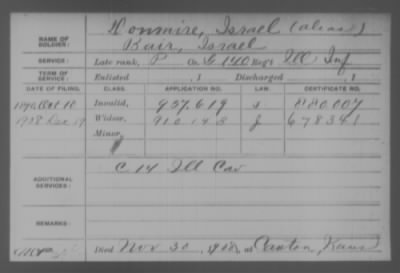 NAME OF SOLDIER: Honmire, Israel (alias)
Bair, Israel
SERVICE: Late rank, P Co. G 140 Reg't Ill Inf
TERM OF SERVICE: Enlisted , 1 Discharged , 1
DATE OF FILING. CLASS. APPLICATION NO. LAW. CERTIFICATE NO.
1890 Oct 10 Invalid, 957.619 880.007
1918 Dec 19 Widow, 910.143 678341
Minor,
ADDITIONAL SERVICES: C 14 Ill Cav
REMARKS:
Died Nov 30, 1918, at Canton, Kans